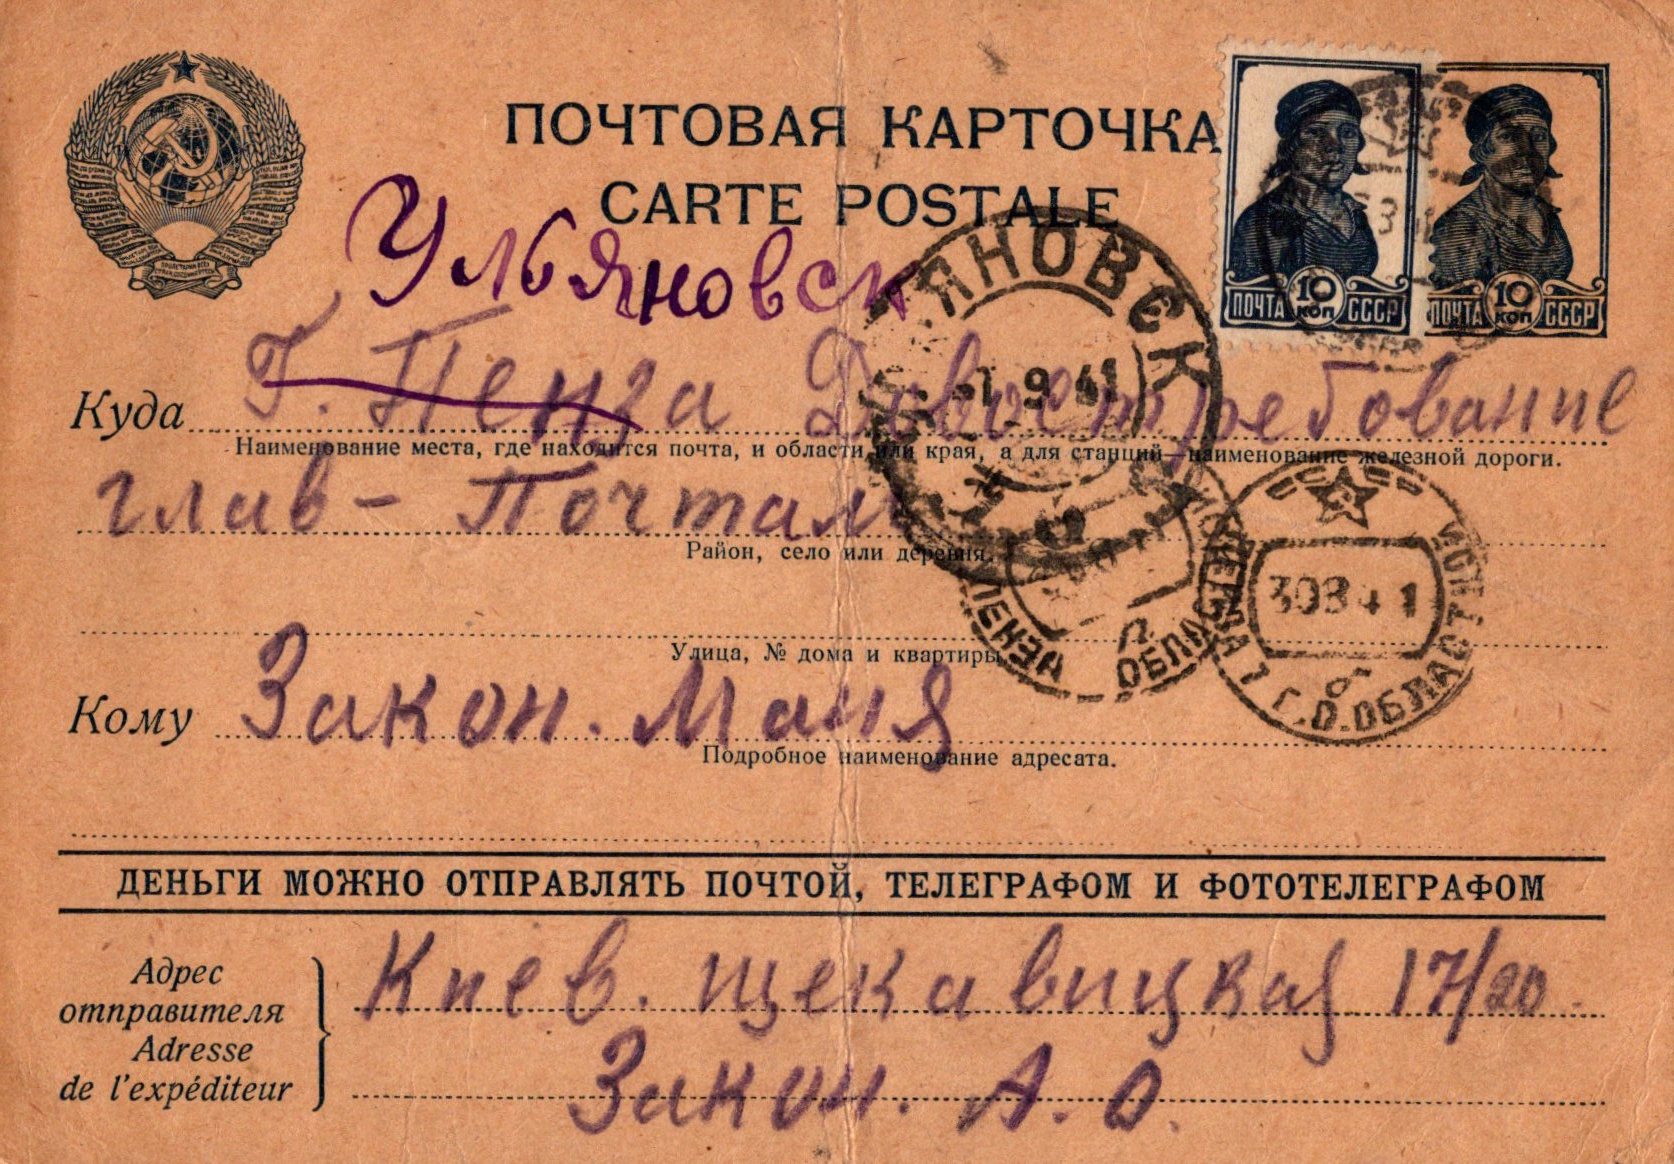 ПОЧТОВАЯ КАРТОЧКА
CARTE POSTALE
ПОЧТА 10 КОП СССР
ПОЧТА 10 КОП СССР
Ульяновск
ЯНОВСК
-1 9 41
Куда Г. Пенза Довостребование
Наименование места, где находится почта, и области или края, а для станций—наименование железной дороги.
глав-Почтам
Район, село или деревня.
ПЕНЗА ОБЛАСТН
ПЕНЗА 1 Г.О.ОБЛАСТНОЙ
30 8 41
б
Улица, № дома и квартиры
Кому Закон. Маня
Подробное наименование адресата.
ДЕНЬГИ МОЖНО ОТПРАВЛЯТЬ ПОЧТОЙ, ТЕЛЕГРАФОМ И ФОТОТЕЛЕГРАФОМ
Адрес отправителя
Adresse de l'expéditeur
Киев. Щекавицкая 17/20
Закон. А. О.